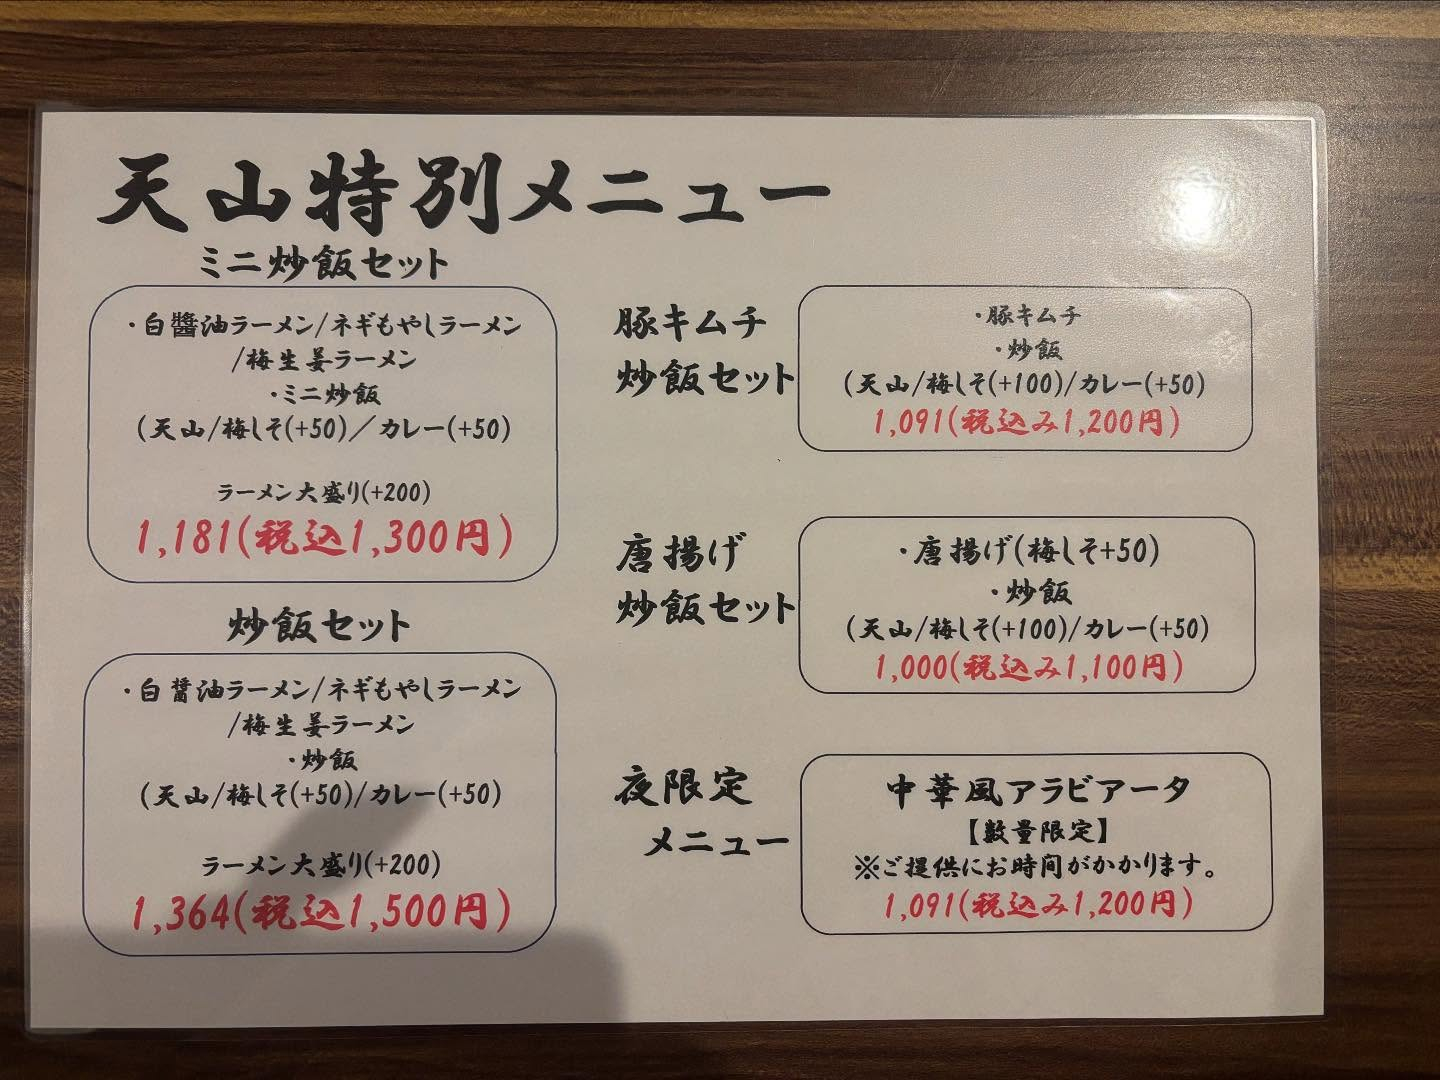 天山特別メニュー
ミニ炒飯セット
・白醬油ラーメン/ネギもやしラーメン
/梅生姜ラーメン
・ミニ炒飯
(天山/梅しそ(+50)／カレー(+50)
ラーメン大盛り(+200)
1,181(税込1,300円)
炒飯セット
・白醤油ラーメン/ネギもやしラーメン
/梅生姜ラーメン
・炒飯
(天山/梅しそ(+50)/カレー(+50)
ラーメン大盛り(+200)
1,364(税込1,500円)
豚キムチ
炒飯セット
・豚キムチ
・炒飯
(天山/梅しそ(+100)/カレー(+50)
1,091(税込み1,200円)
唐揚げ
炒飯セット
・唐揚げ(梅しそ+50)
・炒飯
(天山/梅しそ(+100)/カレー(+50)
1,000(税込み1,100円)
夜限定
メニュー
中華風アラビアータ
【数量限定】
※ご提供にお時間がかかります。
1,091(税込み1,200円)